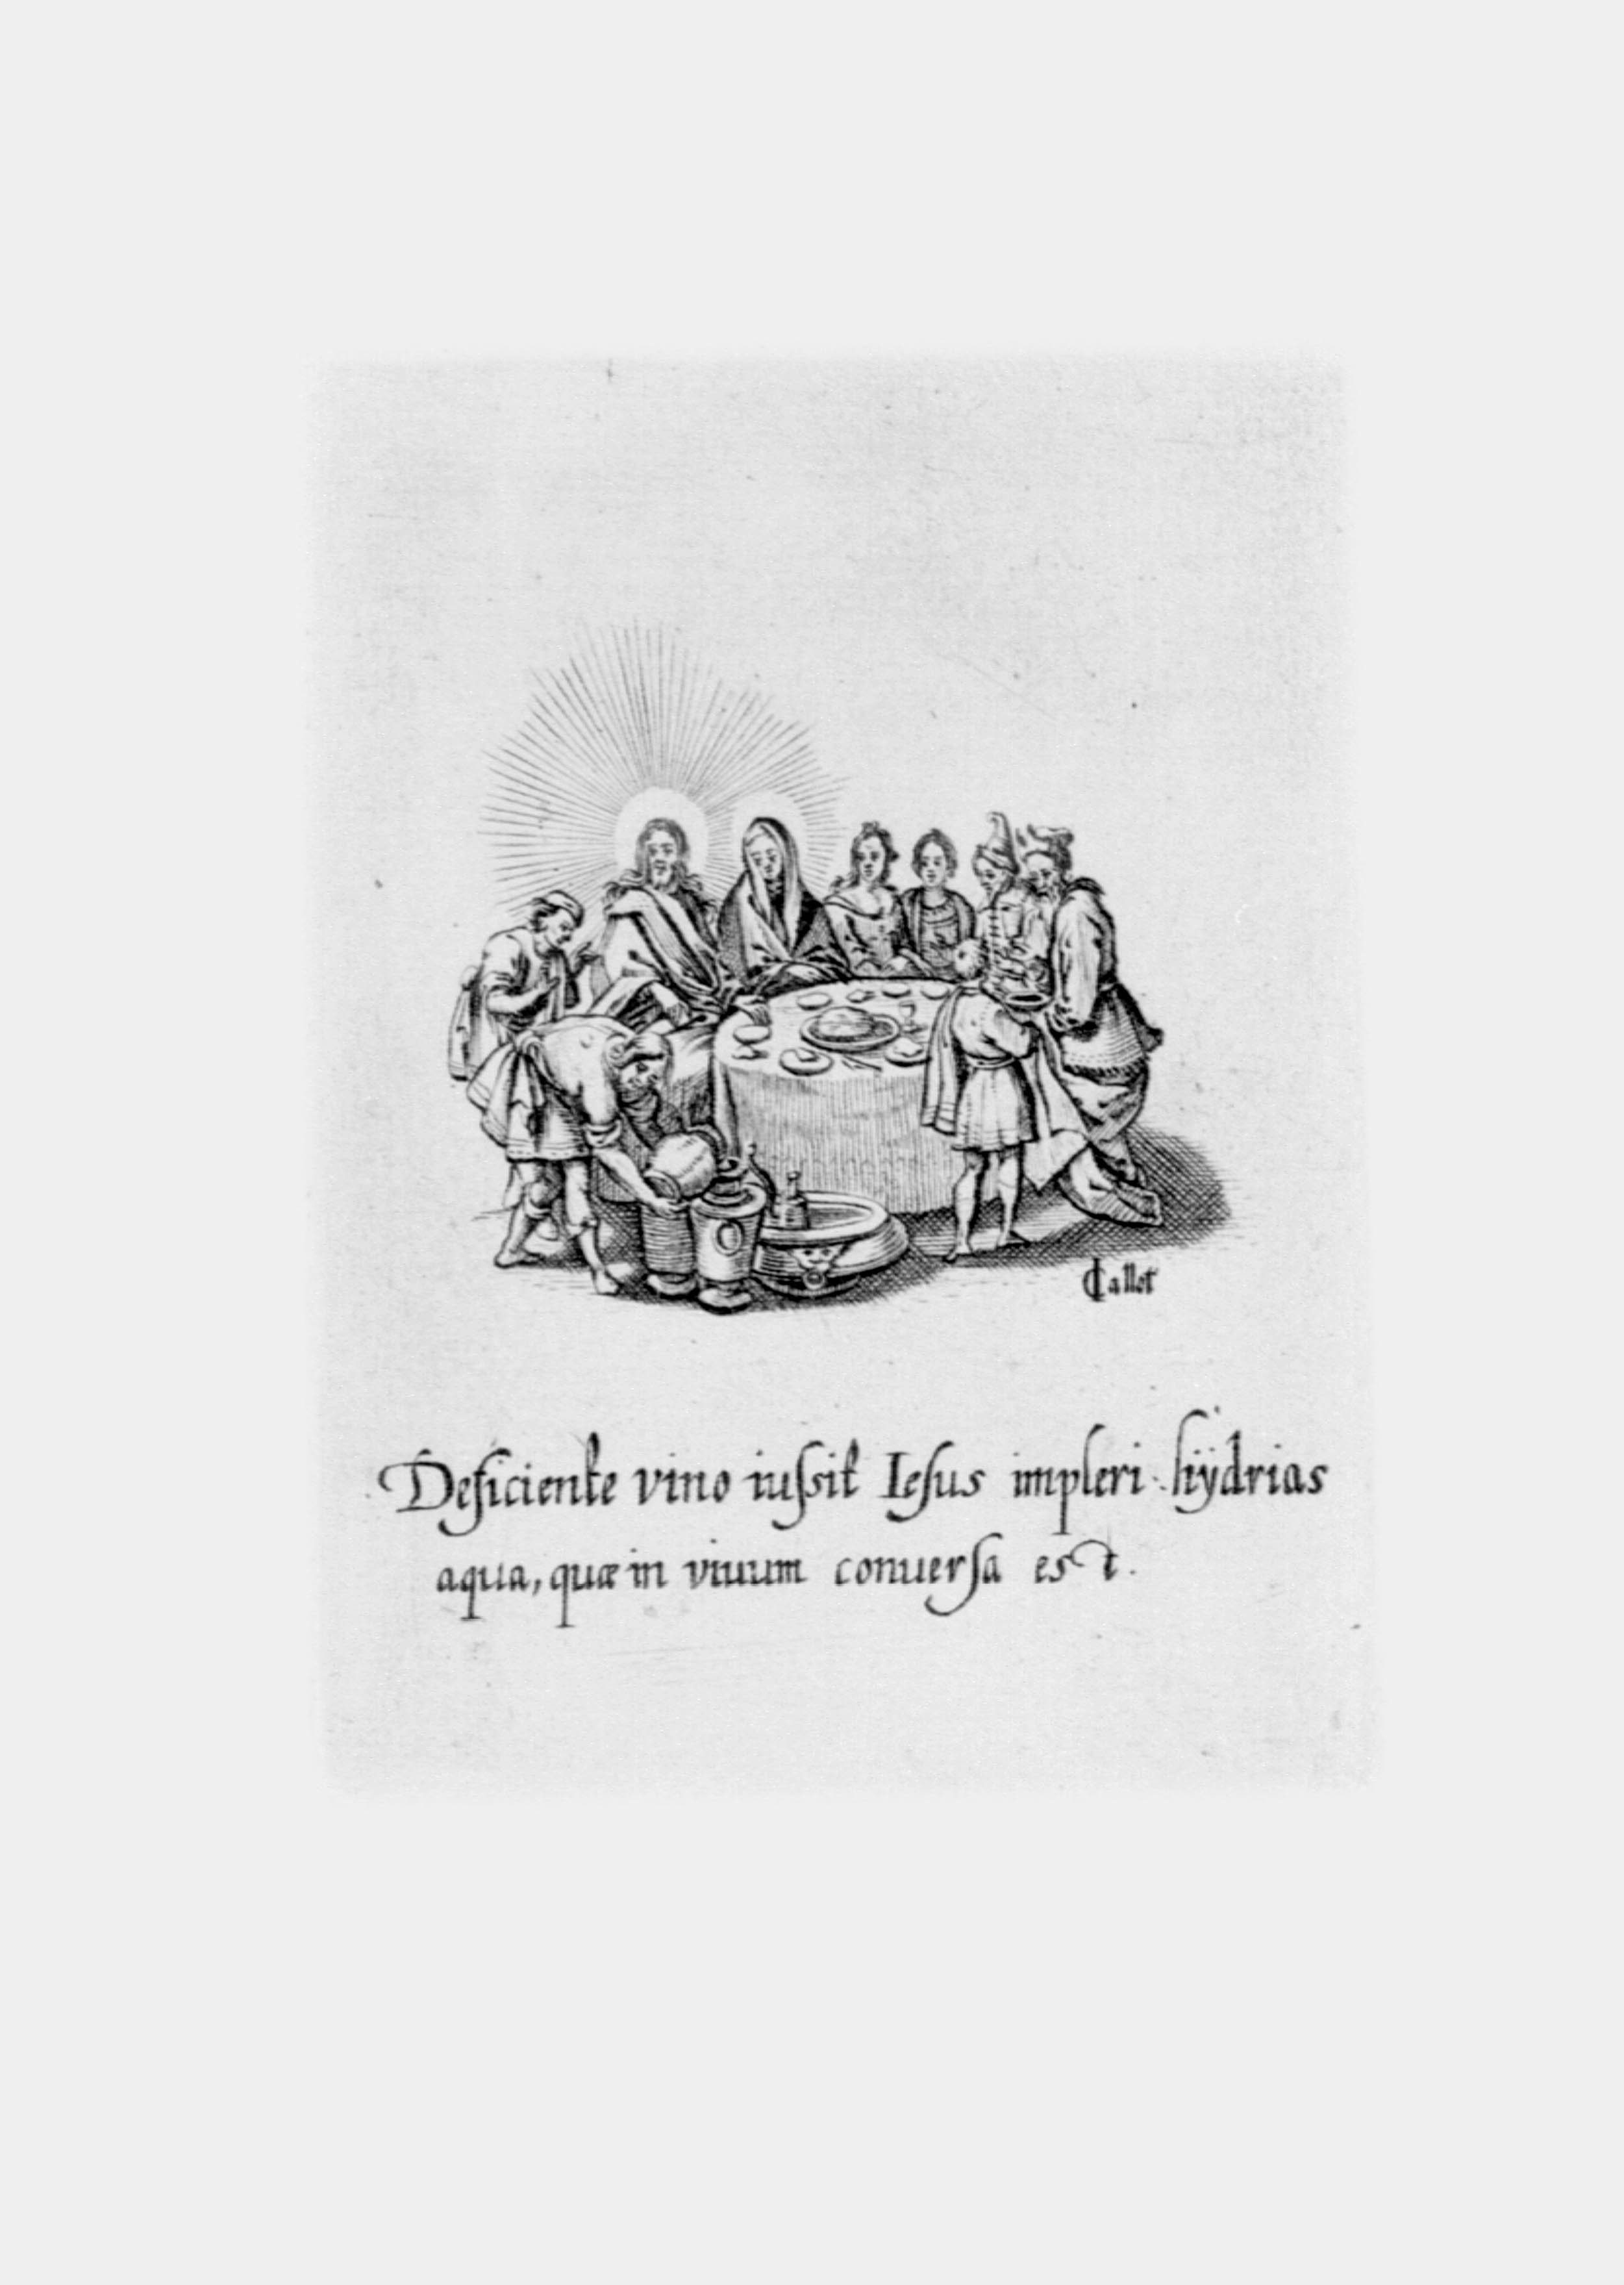 Callot
Deficiente vino iuſsit Ieſus impleri hÿdrias
aqua, quæ in vinum conuerſa est.